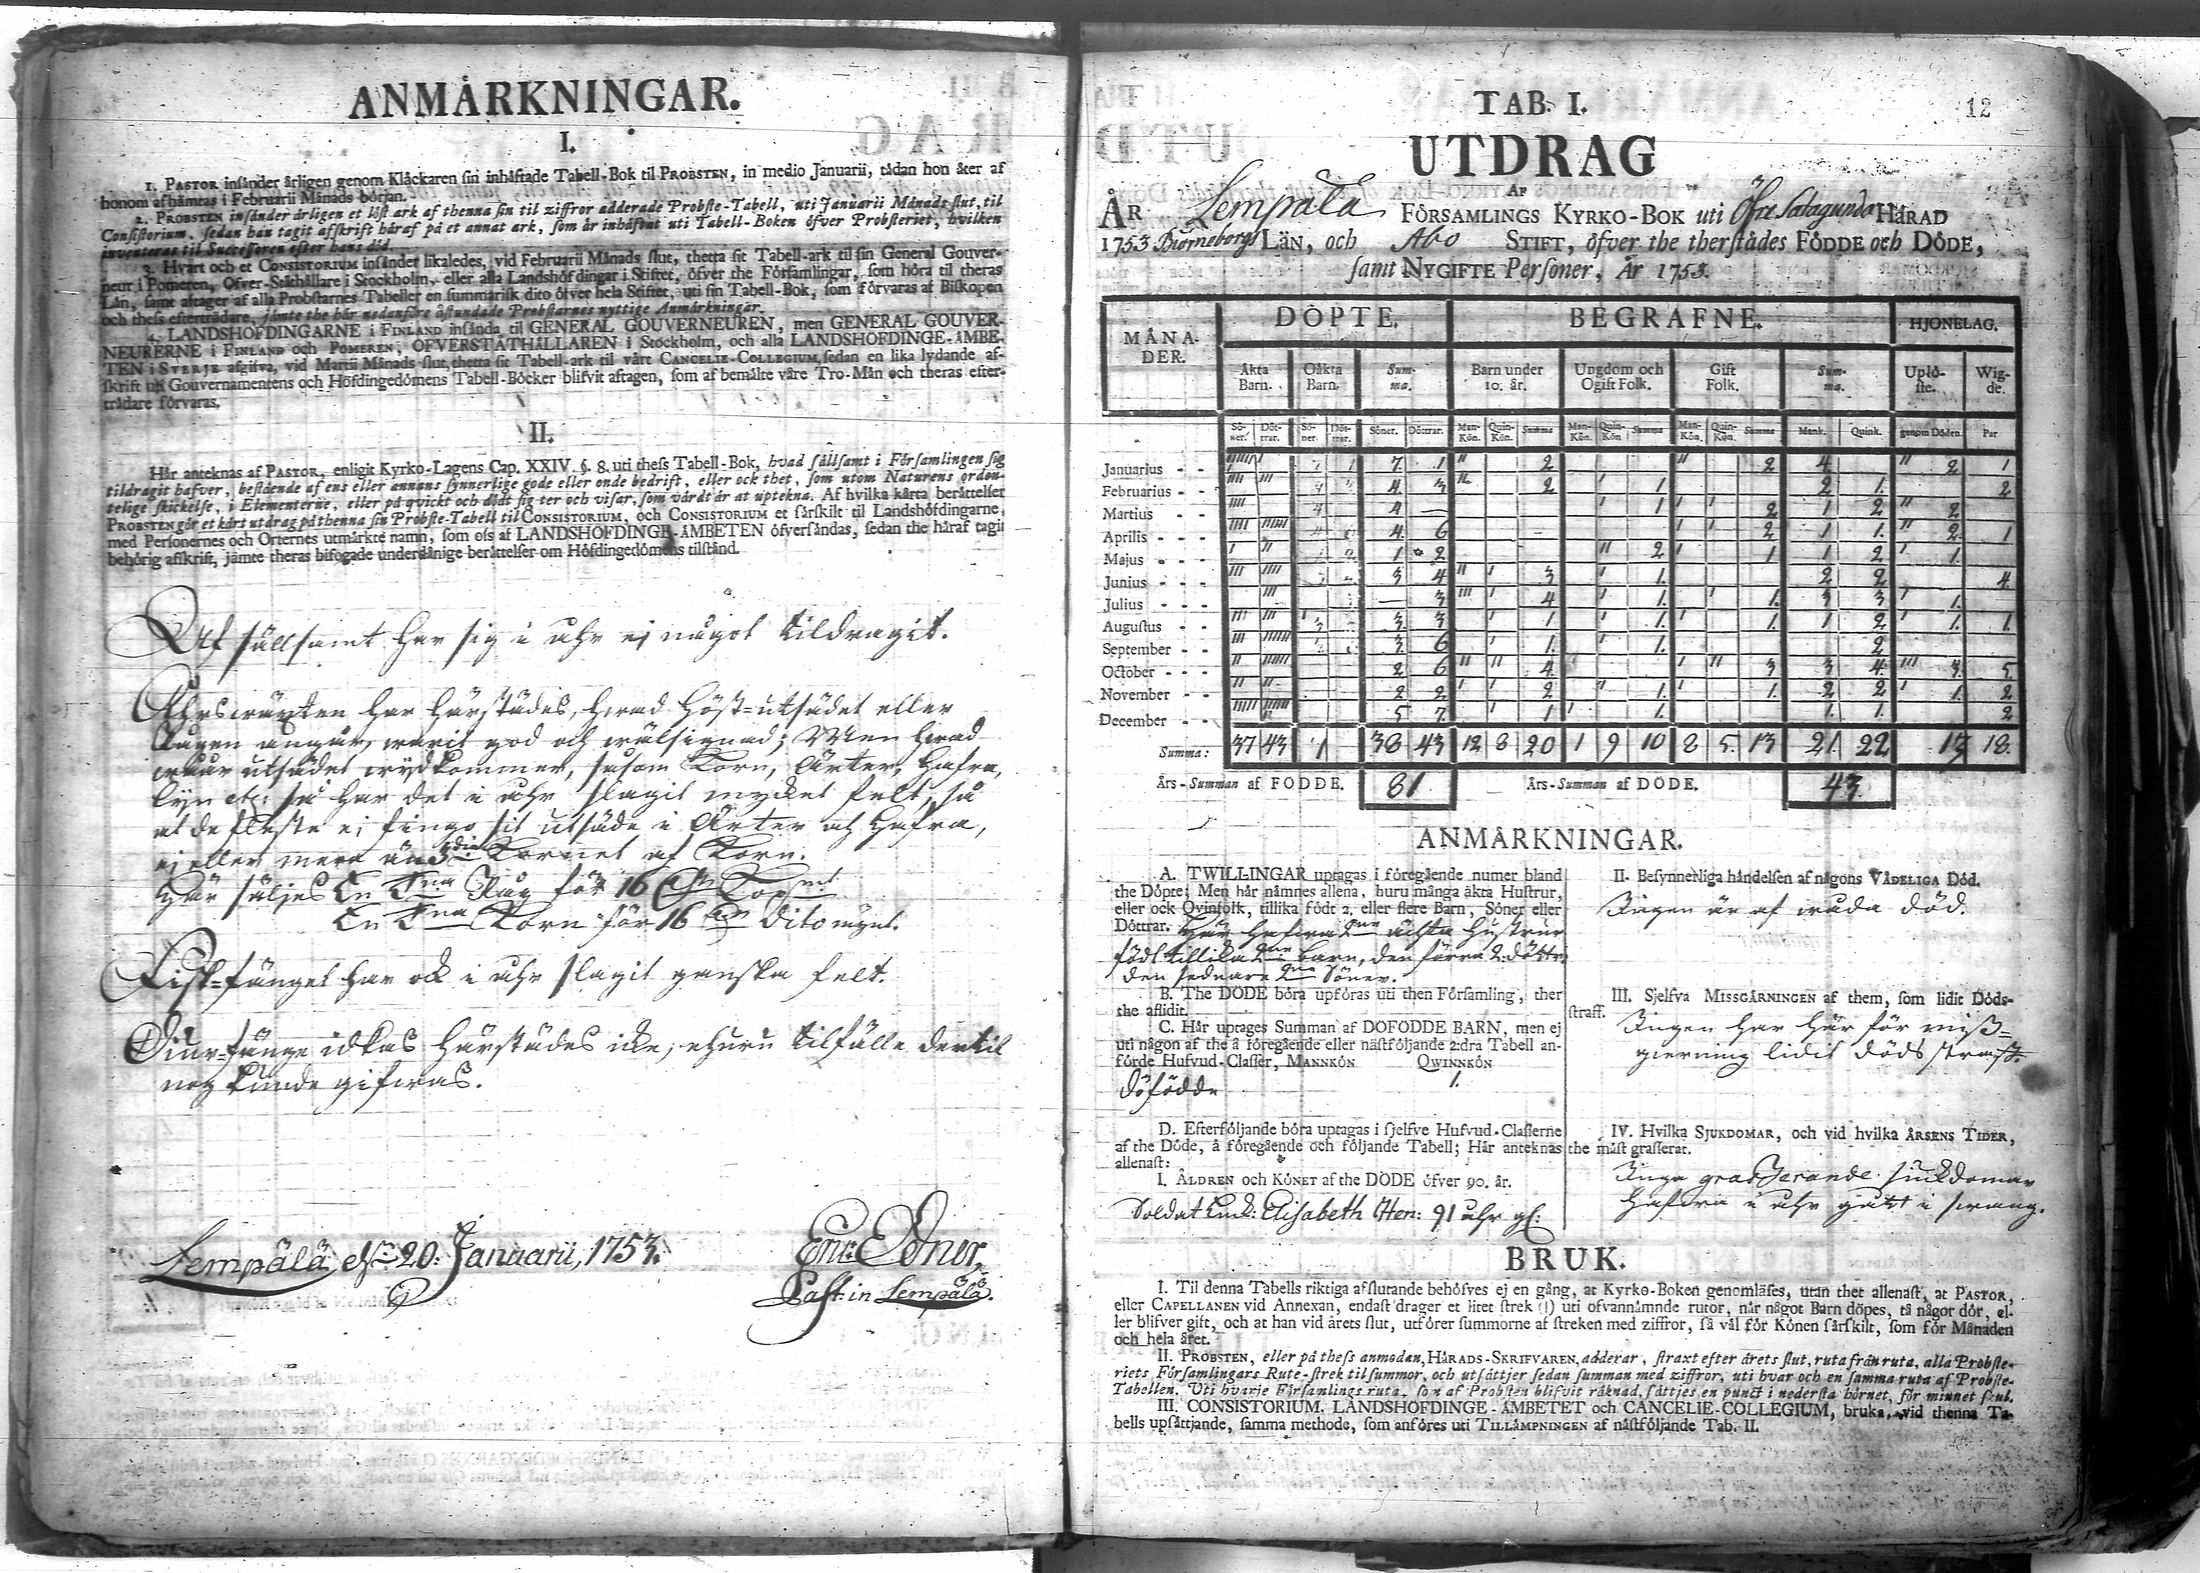 ANMÄRKNINGAR.
I.
1. PASTOR insänder årligen genom Klåckaren sin inhäftade Tabell-Bok til PROBSTEN, in medio Januarii, tådan hon åter af
honom afhämtas i Februarii Månads början.
2. PROBSTEN insänder årligen et löst ark af thenna sin til ziffror adderade Probste-Tabell, uti Januarii Månads slut, til
Consistorium, sedan han tagit afskrift häraf på et annat ark, som är inhäftat uti Tabell-Boken öfver Probsteriet, hvilken
inventeras til Successoren efter hans död.
3. Hvart och et CONSISTORIUM insänder likaledes, vid Februarii Månads slut, thetta sit Tabell-ark til sin General Gouver-
neur i Pomeren, Öfver-Ståthållare i Stockholm, eller alla Landshöfdingar i Stiftet, öfver the Församlingar, som höra til theras
Län, samt aftager af alla Probstarnes Tabeller en summarisk dito öfver hela Stiftet, uti sin Tabell-Bok, som förvaras af Biskopen
och thess efterträdare, jämte the här nedanföre åstundade Probstarnes nyttige Anmärkningar.
4. LANDSHÖFDINGARNE i FINLAND insända til GENERAL GOUVERNEUREN, men GENERAL GOUVER-
NEURERNE i FINLAND och POMEREN, ÖFVERSTÅTHÅLLAREN i Stockholm, och alla LANDSHÖFDINGE-ÄMBE-
TEN i SVERJE afgifva, vid Martii Månads slut, thetta sit Tabell-ark til vårt CANCELIE-COLLEGIUM, sedan en lika lydande af-
skrift uti Gouvernamentens och Höfdingedömens Tabell-Böcker blifvit aftagen, som af bemälte våre Tro-Män och theras efter-
trädare förvaras.
II.
Här anteknas af PASTOR, enligit Kyrko-Lagens Cap. XXIV. §. 8. uti thess Tabell-Bok, hvad sällsamt i Församlingen sig
tildragit hafver, bestående af ens eller annans synnerlige gode eller onde bedrift, eller ock thet, som utom Naturens orden-
telige skickelse, i Elementerne, eller på qvickt och dödt sig ter och visar, som värdt är at uptekna. Af hvilka kårta berättelser
PROBSTEN gör et kårt utdrag på thenna sin Probste-Tabell til CONSISTORIUM, och CONSISTORIUM et särskilt til Landshöfdingarne,
med Personernes och Orternes utmärkte namn, som oss af LANDSHÖFDINGE-ÄMBETEN öfversändas, sedan the häraf tagit
behörig afskrift, jämte theras bifogade underdånige berättelser om Höfdingedömens tilstånd.
Af sällsamt har sig i åhr ej något tildragit.
Åhrswäxten har härstädes, hwad höst-utsädet eller
Rågen angår, warit god och wälsignad; Men hwad
wår utsädet widkommer, såsom Korn, Ärter, Hafra,
Lijn etc: så har det i åhr slagit mycket felt, så
at de fleste ej fingo sit utsäde i Ärter och Hafra,
ej eller mera än 3die Kornet af Korn.
Här säljes En Tna Råg för 16
En Tna Korn för 16 dito mynt.
Fisk-fånget har ock i åhr slagit ganska felt.
Diur-fånge idkas härstädes icke, ehuru tilfälle dertil
nog kunde gifwas.
Lempälä, d: 20: Januarii, 1753.
Past: in Lempälä.
12
TAB. I.
UTDRAG
AF
ÅR Lempälä FÖRSAMLINGS KYRKO-BOK uti Öfre Satagunda HÄRAD
1753 Biörneborgs LÄN, och Åbo STIFT, öfver the therstädes FÖDDE och DÖDE,
samt NYGIFTE Personer, År 1753.
MÅNA-DER. DÖPTE. BEGRAFNE. HJONELAG.
Äkta Barn. Oäkta Barn. Summa. Barn under 10. år. Ungdom och Ogift Folk. Gift Folk. Summa. Uplöste. Wigde.
Söner. Döttrar. Söner. Döttrar. Söner. Döttrar. Man-Kön. Quin-Kön. Summa Man-Kön. Quin-Kön Summa Man-Kön. Quin-Kön. Summa Mank. Quink. genom Döden. Par
Januarius - - 7. 1 2 2 4. 2 1
Februarius - - 4. 3 2 1 2 1. 2
Martius - - 4 — 1 2 1 2 2
Aprilis - - - 4. 6 2 1 1. 2. 1
Majus - - - 1 2 2 1 1 2 1.
Junius - - - 3 4 3 1. 2 2 4.
Julius - - - — 3 4 1. 1. 3 3 1.
Augustus - - 3. 3 1 1. 1. 1 2 1. 1.
September - - 3 6 1. 1. 2
October - - - 2 6 4. 3 3 4. 3. 5.
November - - 2 2 2 1. 1. 2 2 1. 2
December - - 5 7. 1 1. 1. 1. 2
Summa: 37 43 1 38 43 12 8 20 1 9 10 8 5. 13 21. 22 13 18.
Års-Summan af FÖDDE. 81 Års-Summan af DÖDE. 43
ANMÄRKNINGAR.
A. TWILLINGAR uptagas i föregående numer bland
the Döpte; Men här nämnes allena, huru många äkta Hustrur,
eller ock Qvinfolk, tillika födt 2. eller flere Barn, Söner eller
Döttrar. Här hafwa 2ne ächta hustrur
födt tillika 2ne barn, den förra 2. döttr:
den sednare 2ne Söner.
B. The DÖDE böra upföras uti then Församling, ther
the aflidit.
C. Här uptages Summan af DÖFÖDDE BARN, men ej
uti någon af the å föregående eller nästföljande 2:dra Tabell an-
förde Hufvud-Classer, MANNKÖN QWINNKÖN
Döfödde 1.
D. Efterföljande böra uptagas i sjelfve Hufvud-Classerne
af the Döde, å föregående och följande Tabell; Här anteknas
allenast:
I. ÅLDREN och KÖNET af the DÖDE öfver 90. år.
Soldat Enck: Elisabeth Hen: 91 åhr gl:
II. Besynnerliga händelsen af någons VÅDELIGA Död.
Ingen är af wåda död.
III. Sjelfva MISSGÄRNINGEN af them, som lidit Döds-
straff.
Ingen har här för miss-
gierning lidit dödsstraff.
IV. Hvilka SJUKDOMAR, och vid hvilka ÅRSENS TIDER,
the mäst grasserat.
Inga grasserande siuckdomar
hafwa i åhr gådt i swang.
BRUK.
I. Til denna Tabells riktiga afslutande behöfves ej en gång, at Kyrko-Boken genomläses, utan thet allenast, at PASTOR,
eller CAPELLANEN vid Annexan, endast drager et litet strek (|) uti ofvannämnde rutor, når något Barn döpes, tå någor dör, el-
ler blifver gift, och at han vid årets slut, utförer summorne af streken med ziffror, så väl för Könen särskilt, som för Månaden
och hela året.
II. PROBSTEN, eller på thess anmodan, HÄRADS-SKRIFVAREN, adderar, straxt efter årets slut, ruta från ruta, alla Probste-
riets Församlingars Rute-strek til summor, och utsättjer sedan summan med ziffror, uti hvar och en samma ruta af Probste-
Tabellen. Uti hvarje Församlings ruta, som af Probsten blifvit räknad, sättjes en punct i nedersta hörnet, för minnet skul.
III. CONSISTORIUM, LANDSHÖFDINGE-ÄMBETET och CANCELIE-COLLEGIUM, bruka, vid thenna Ta-
bells upsättjande, samma methode, som anföres uti TILLÄMPNINGEN af nästföljande Tab. II.